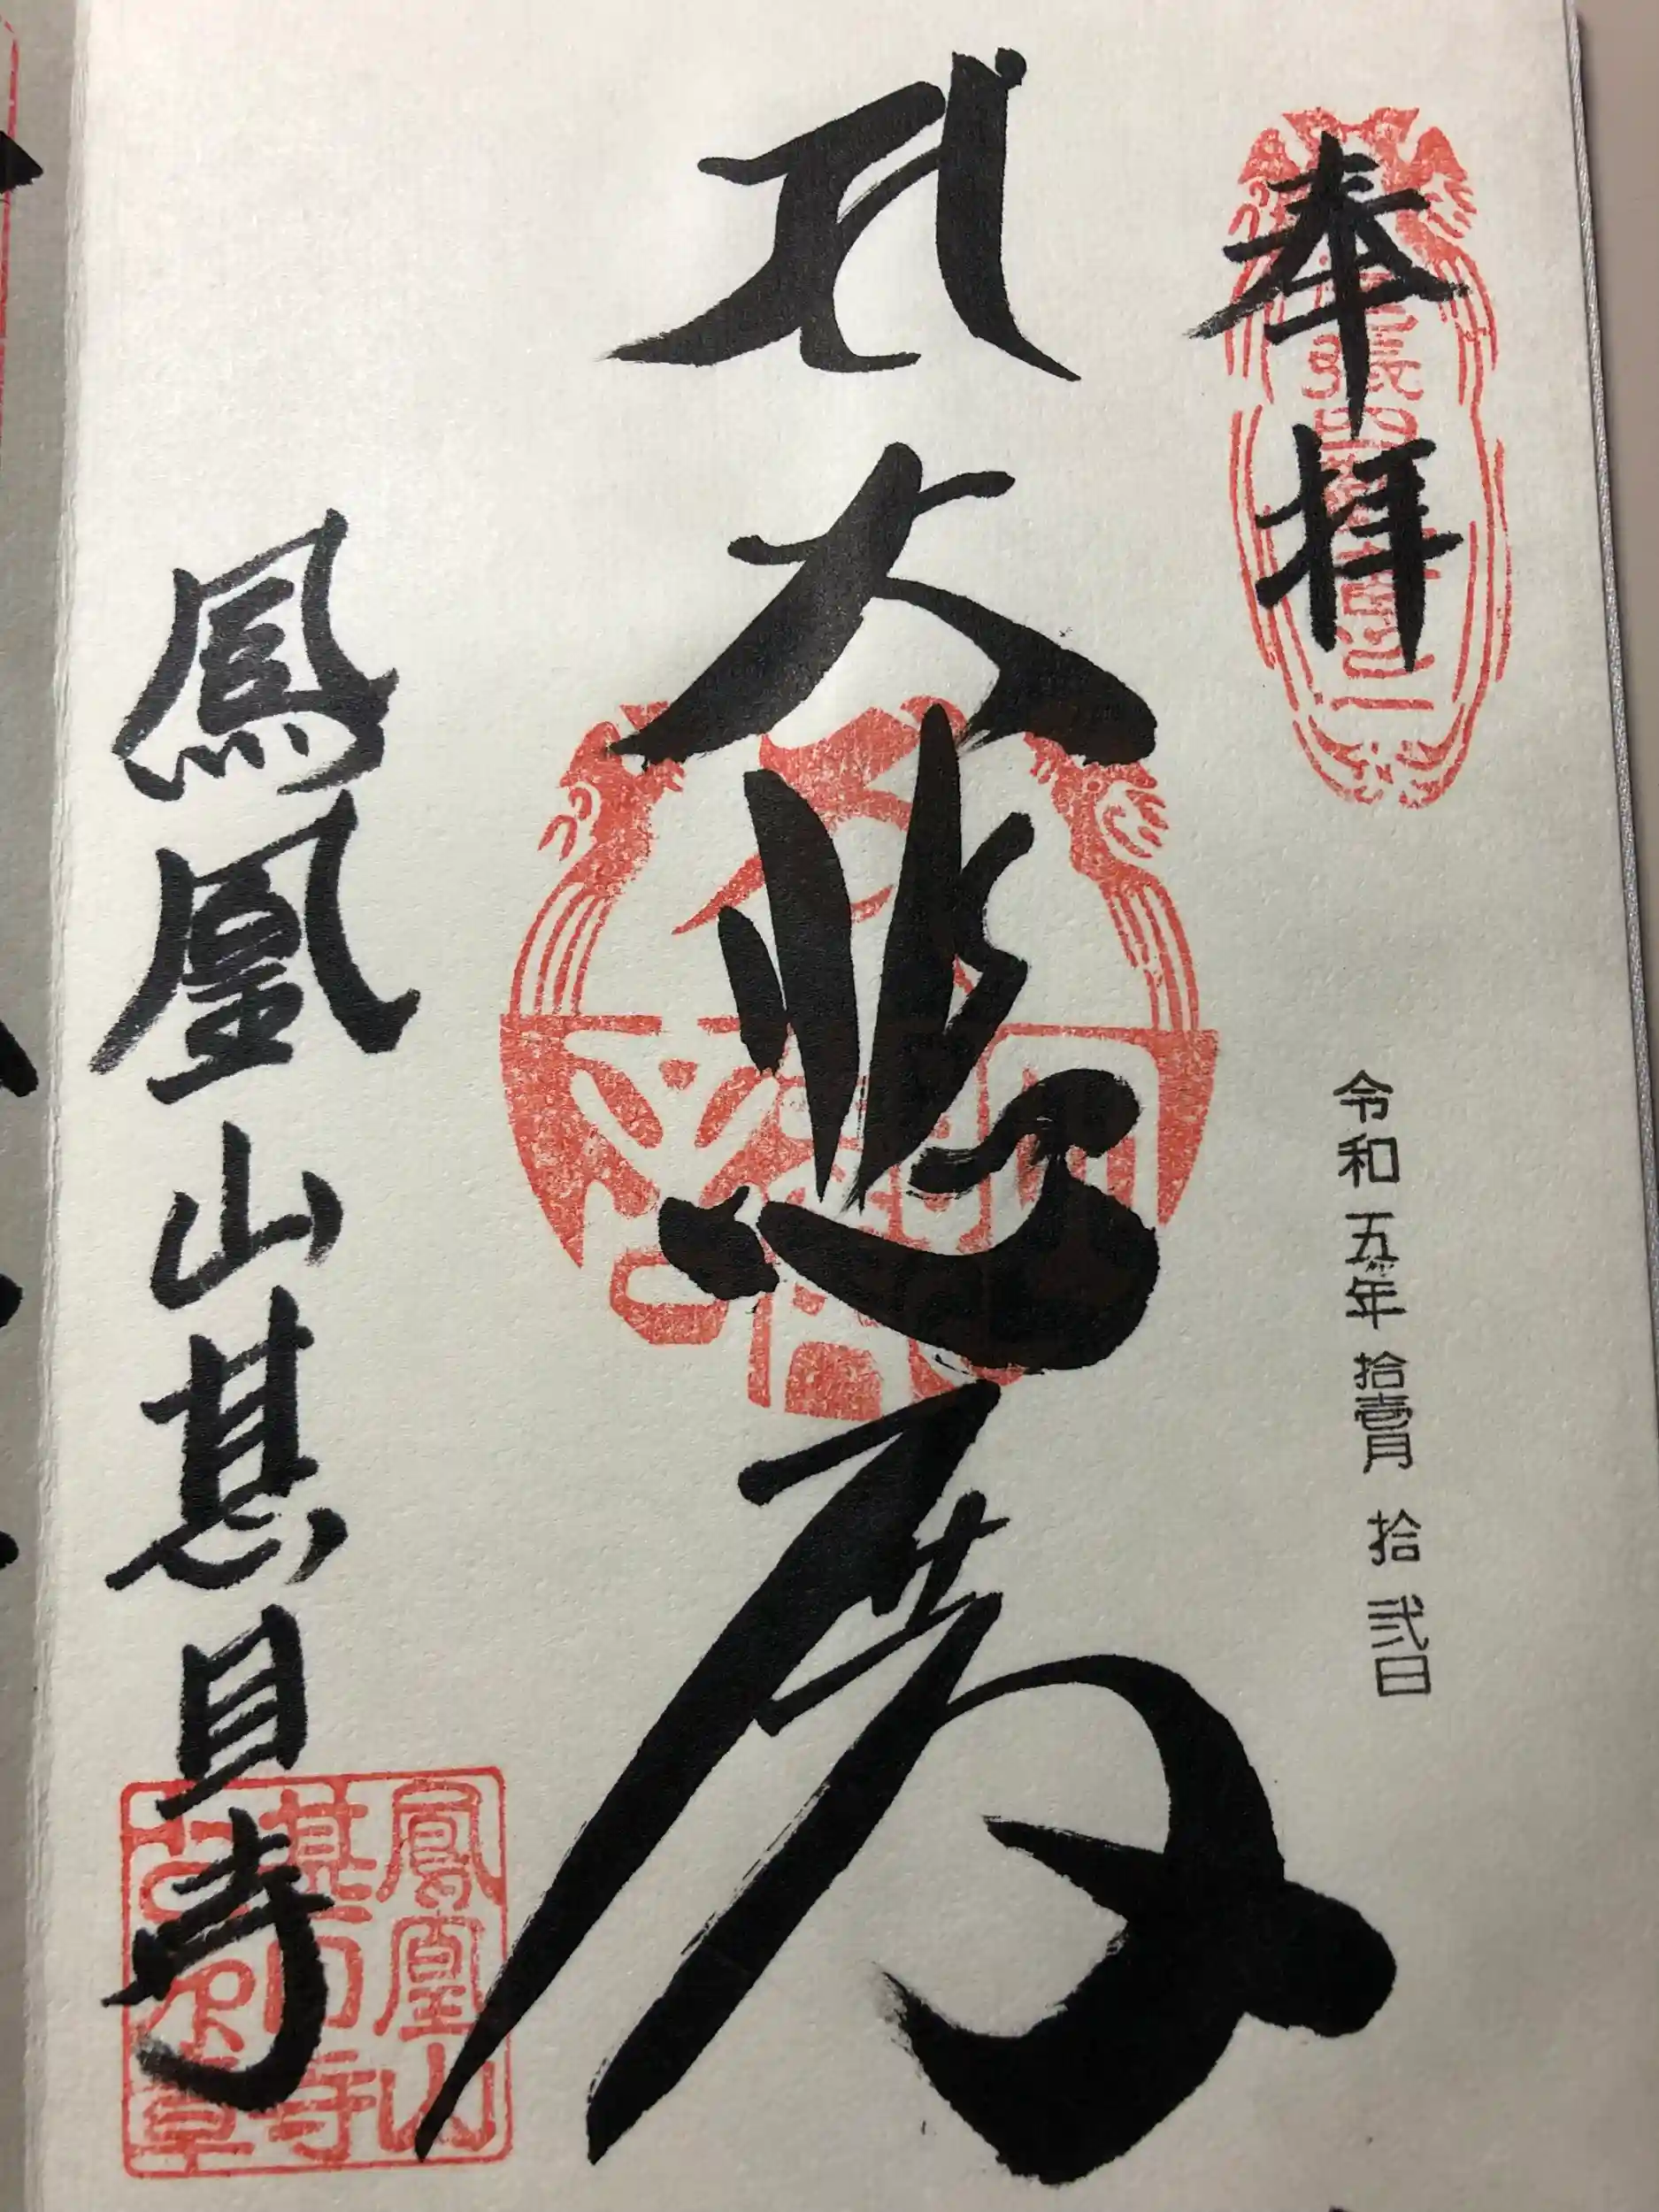 奉拝
令和五年拾壹月拾弐日
大悲殿
鳳凰山甚目寺
鳳凰山
甚目寺